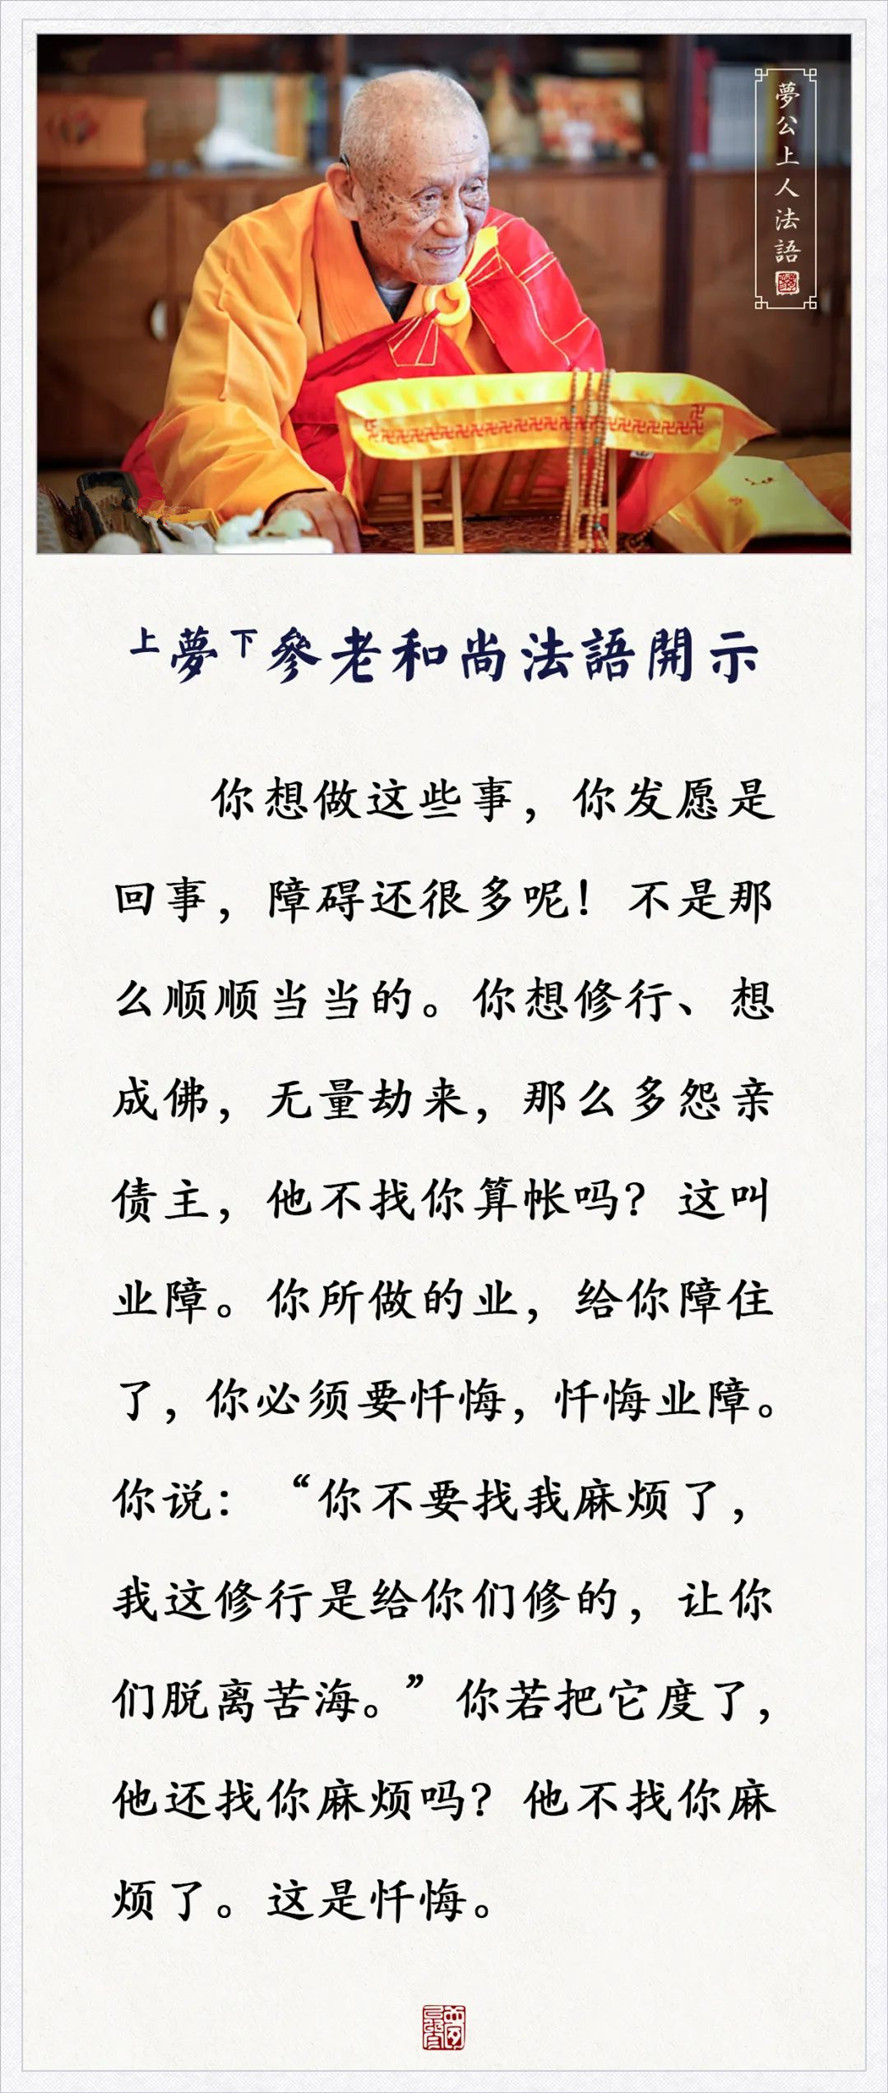 夢公上人法語
上夢下參老和尚法語開示
你想做这些事，你发愿是
回事，障碍还很多呢！不是那
么顺顺当当的。你想修行、想
成佛，无量劫来，那么多怨亲
债主，他不找你算帐吗？这叫
业障。你所做的业，给你障住
了，你必须要忏悔，忏悔业障。
你说：“你不要找我麻烦了，
我这修行是给你们修的，让你
们脱离苦海。”你若把它度了，
他还找你麻烦吗？他不找你麻
烦了。这是忏悔。